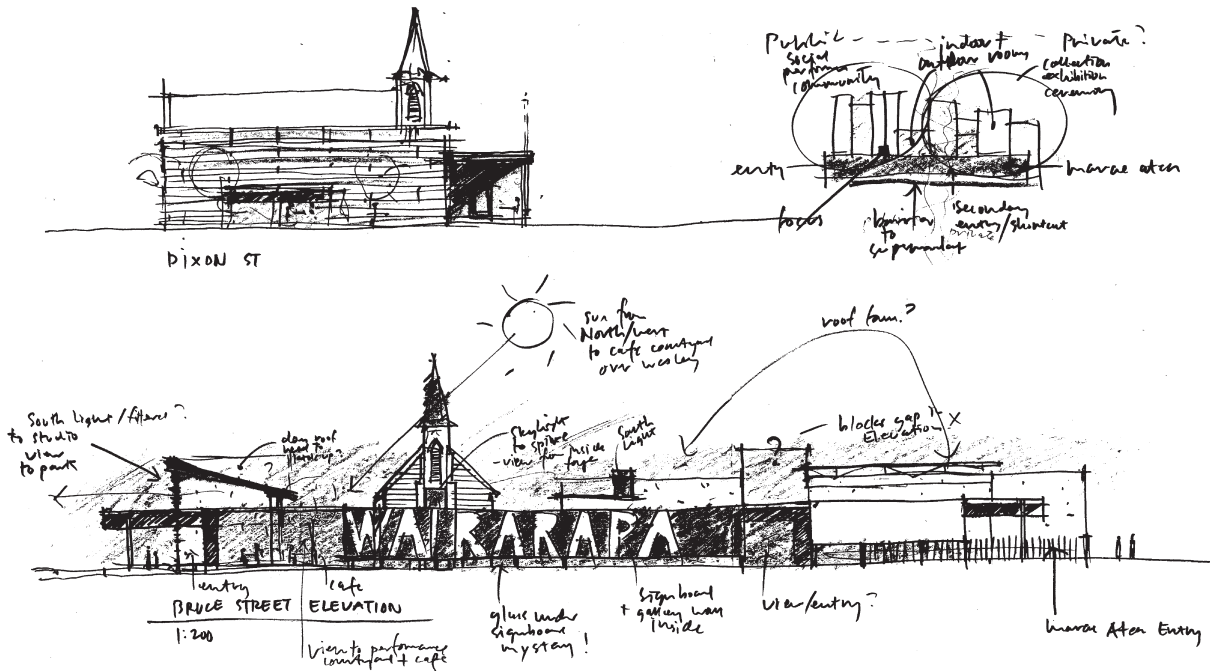 Public
social
community
indoor +
outdoor rooms
Private?
collection
exhibition
ceremony
entry
marae atea
focus
barrier
to
supermarket
secondary
entry/shortcut
DIXON ST
sun from
North/west
to cafe courtyard
over wesley
roof form?
South Light/filtered?
to studio
view
to park
?
skylight
to spire
- view from inside
South
Light
?
blocks gap?
Elevation
X
WAIRARAPA
entry
cafe
BRUCE STREET ELEVATION
1:200
view to performance
courtyard + cafe
glass under
signboard
mystery!
signboard
+ gallery wall
inside
view/entry?
Marae Atea Entry